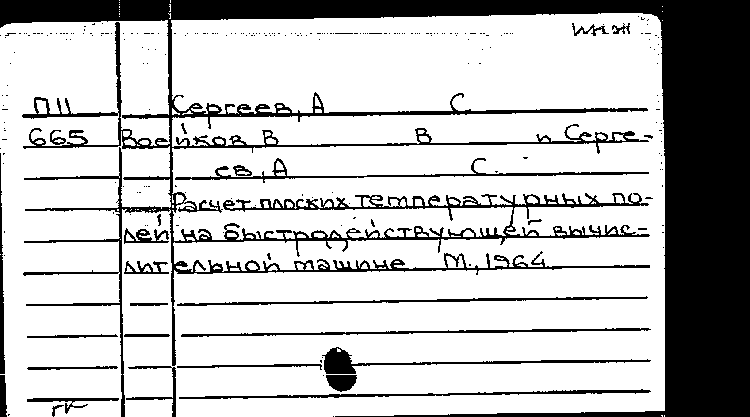 инж
П11 Сергеев, А С.
665 Воейков, В В и Серге-
ев, А С.
Расчет плоских температурных по-
лей на быстродействующей вычис-
лительной машине М., 1964
гк